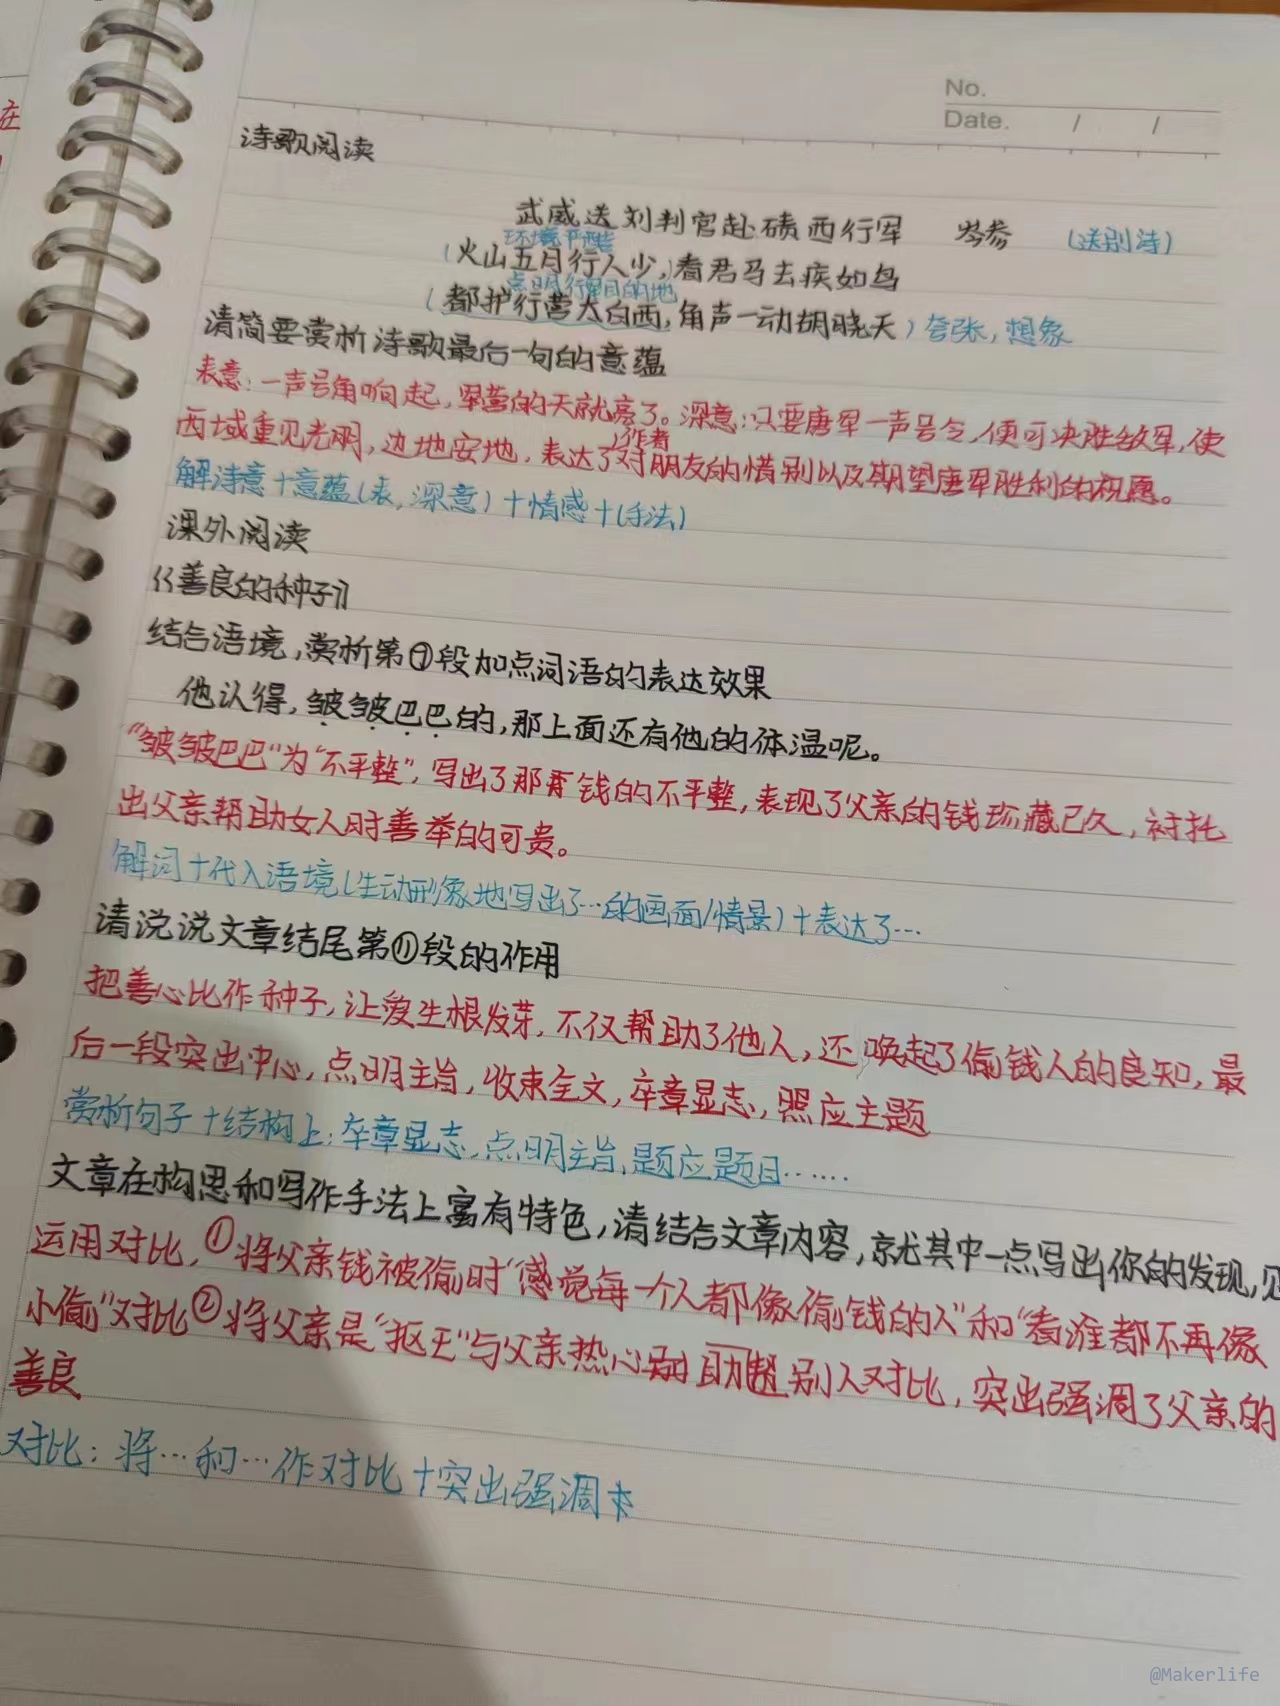 在
No.
Date. / /
诗歌阅读
武威送刘判官赴碛西行军 岑参 (送别诗)
(火山五月行人少,看君马去疾如鸟
点明行军目的地
(都护行营太白西,角声一动胡晓天)夸张,想象
请简要赏析诗歌最后一句的意蕴
表意:一声号角响起,军营的天就亮了。深意:只要唐军一声号令,便可决胜敌军,使
作者
西域重见光明,边地安地,表达了对朋友的惜别以及期望唐军胜利的祝愿。
解诗意+意蕴(表,深意)+情感+(手法)
课外阅读
《善良的种子》
结合语境,赏析第⑦段加点词语的表达效果
他认得,皱皱巴巴的,那上面还有他的体温呢。
“皱皱巴巴”为“不平整”,写出了那钱的不平整,表现了父亲的钱珍藏已久,衬托
出父亲帮助女人时善举的可贵。
解词+代入语境(生动形象地写出了…的画面/情景)+表达了…
请说说文章结尾第⑪段的作用
把善心比作种子,让爱生根发芽,不仅帮助了他人,还唤起了偷钱人的良知,最
后一段突出中心,点明主旨,收束全文,卒章显志,照应主题
赏析句子+结构上:卒章显志,点明主旨,题应题目……
文章在构思和写作手法上富有特色,请结合文章内容,就其中一点写出你的发现,见
运用对比,①将父亲钱被偷时“感觉每一个人都像偷钱的人”和“看谁都不再像
小偷”对比②将父亲是“抠王”与父亲热心助别人对比,突出强调了父亲的
善良
对比:将…和…作对比+突出强调
@Makerlife